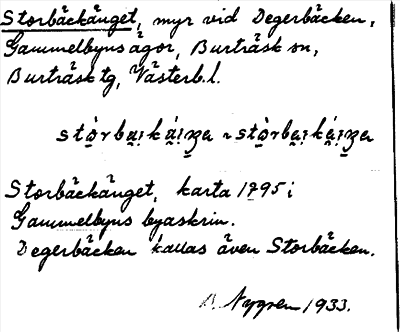 Storbäckänget, myr vid Degerbäcken,
Gammelbyns ägor, Burträsk sn,
Burträsk tg, Västerb. l.
Storbäckänget, karta 1795 i
Gammelbyns byaskrin.
Degerbäcken kallas även Storbäcken.
B. Nygren 1933.